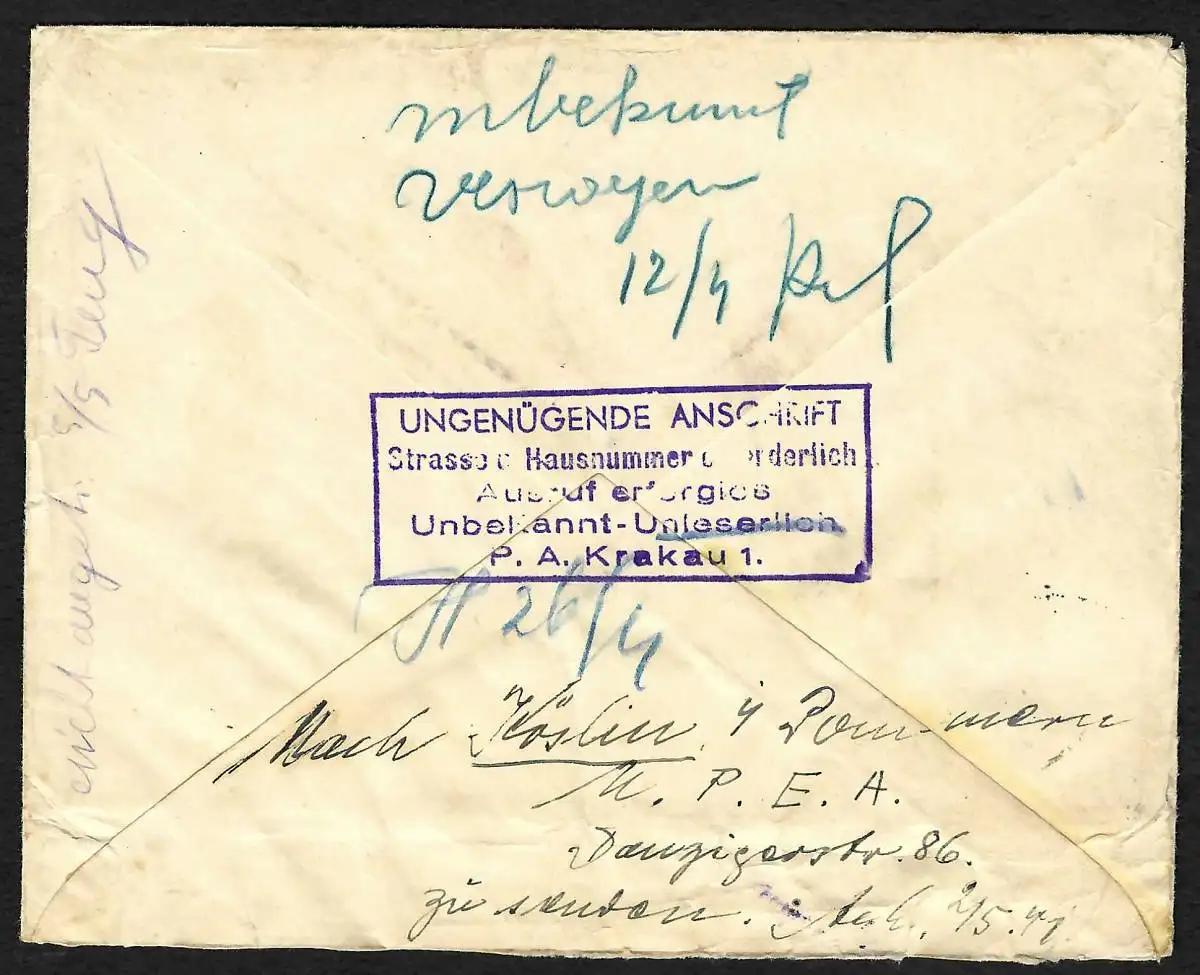 unbekannt
verzogen
12/4
UNGENÜGENDE ANSCHRIFT
Strasse u Hausnummer erforderlich
Ausruf erfolglos
Unbekannt-Unleserlich
P. A. Krakau 1.
26/4
Nach Köslin i Pommern
N. P. E. A.
Danzigerstr. 86.
zu senden. 2/5.41
nicht 5/5